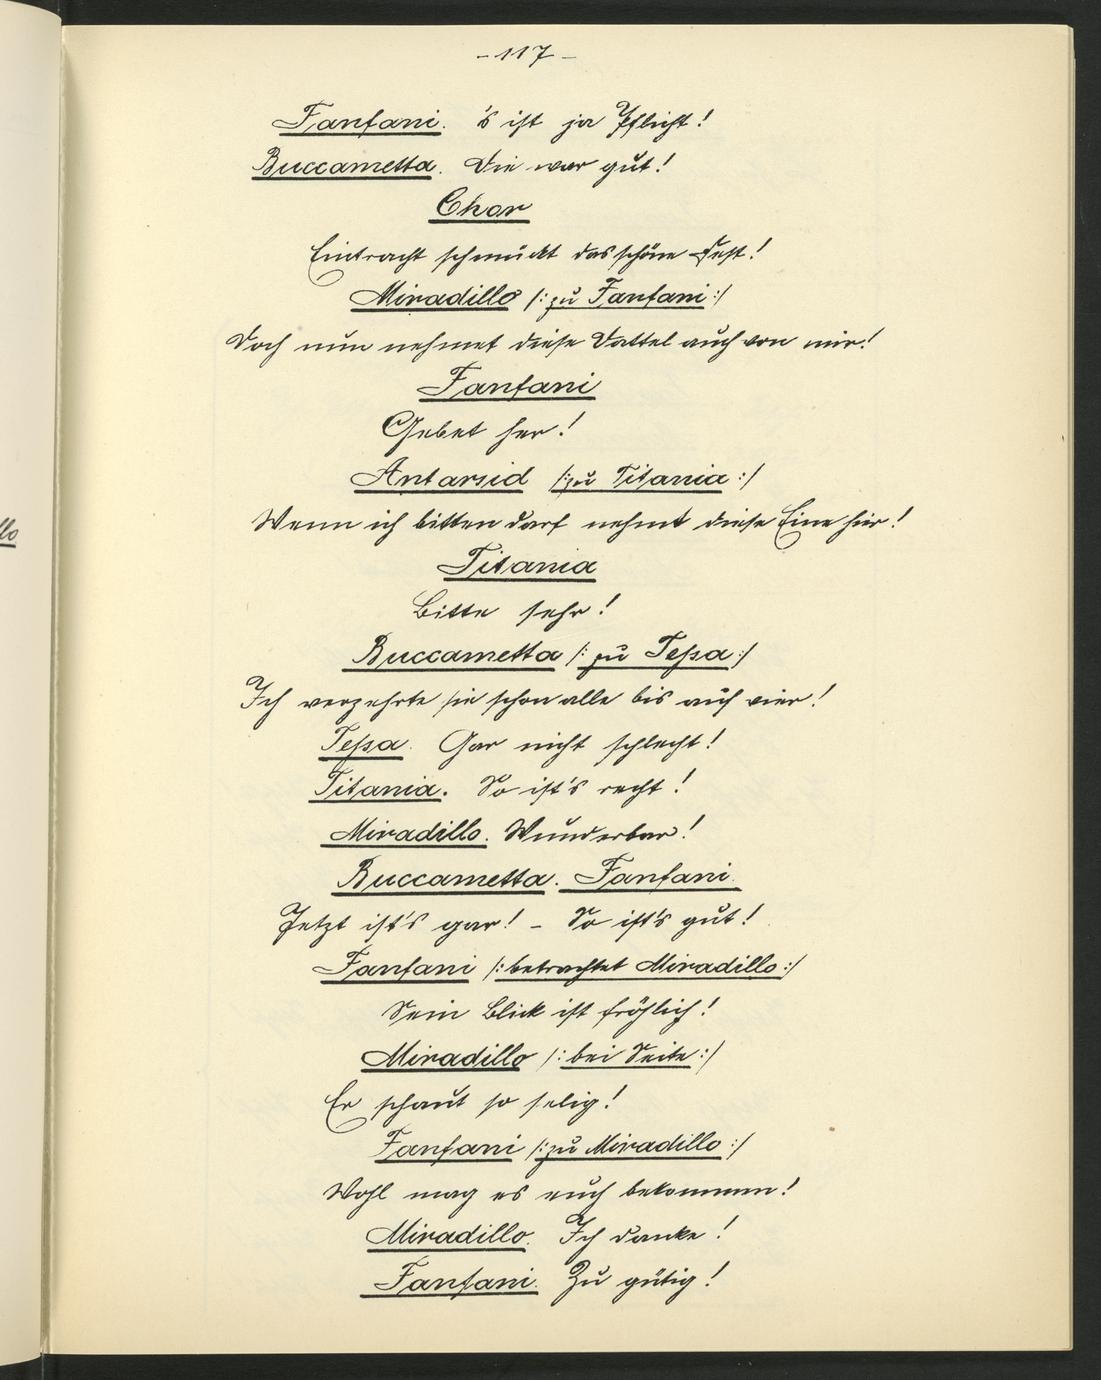 -117-
Fanfani. 's ist ja Pflicht!
Buccametta. Die war gut!
Chor
Eintracht schmückt das schöne Fest!
Miradillo /: zu Fanfani :/
Doch nun nehmet diese Dattel auch von mir!
Fanfani
Gebet her!
Antarsid /: zu Titania :/
Wenn ich bitten darf nehmt diese Eine hier!
Titania
Bitte sehr!
Buccametta /: zu Teßa :/
Ich verzehrte sie schon alle bis auf vier!
Teßa. Gar nicht schlecht!
Titania. So ist's recht!
Miradillo. Wunderbar!
Buccametta. Fanfani.
Jetzt ist's gar! - So ist's gut!
Fanfani /: betrachtet Miradillo :/
Sein Blick ist fröhlich!
Miradillo /: bei Seite :/
Er schaut so selig!
Fanfani /: zu Miradillo :/
Wohl mag es euch bekommen!
Miradillo. Ich danke!
Fanfani. Zu gütig!
llo